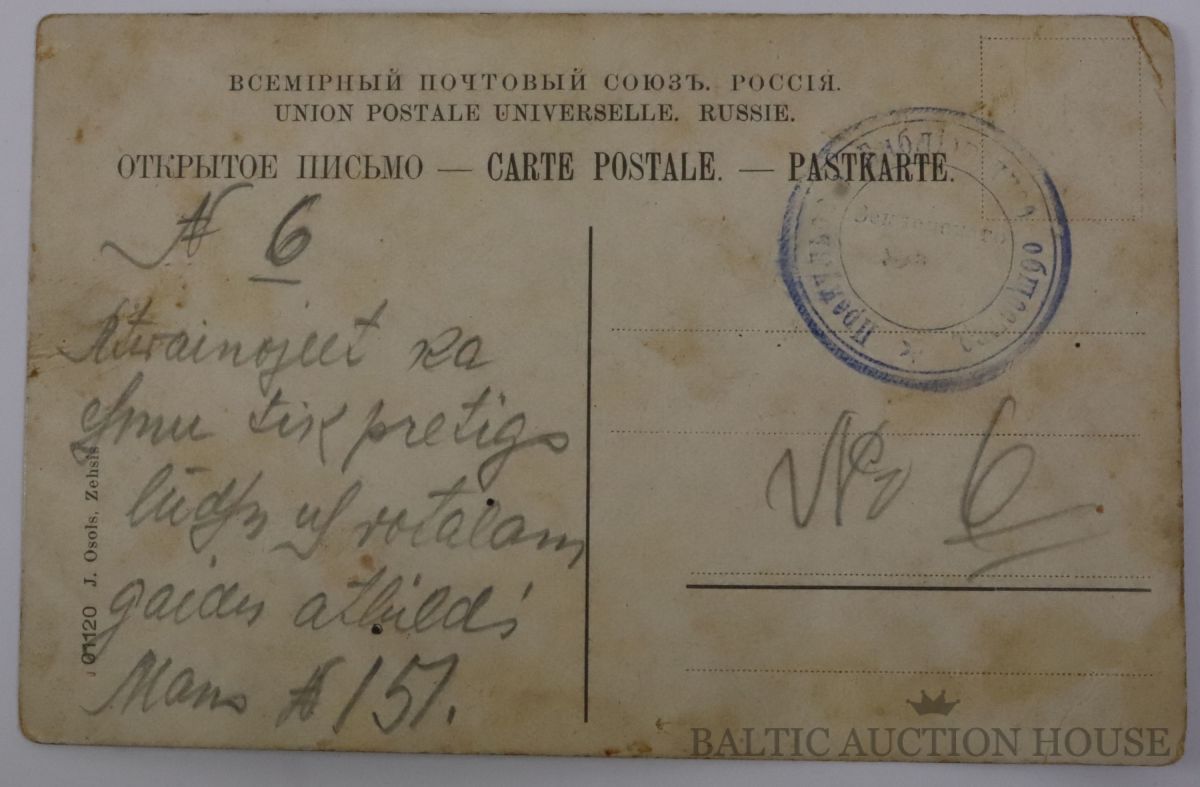 ВСЕМІРНЫЙ ПОЧТОВЫЙ СОЮЗЪ. РОССІЯ.
UNION POSTALE UNIVERSELLE. RUSSIE.
ОТКРЫТОЕ ПИСЬМО — CARTE POSTALE. — PASTKARTE.
общества
№ 6
Atwainojeet ka
esmu tik pretigs
lūdsu us rotalam
gaidu atbildi
Mans № 151.
No 6
01120 J. Osols, Zehsis
BALTIC AUCTION HOUSE